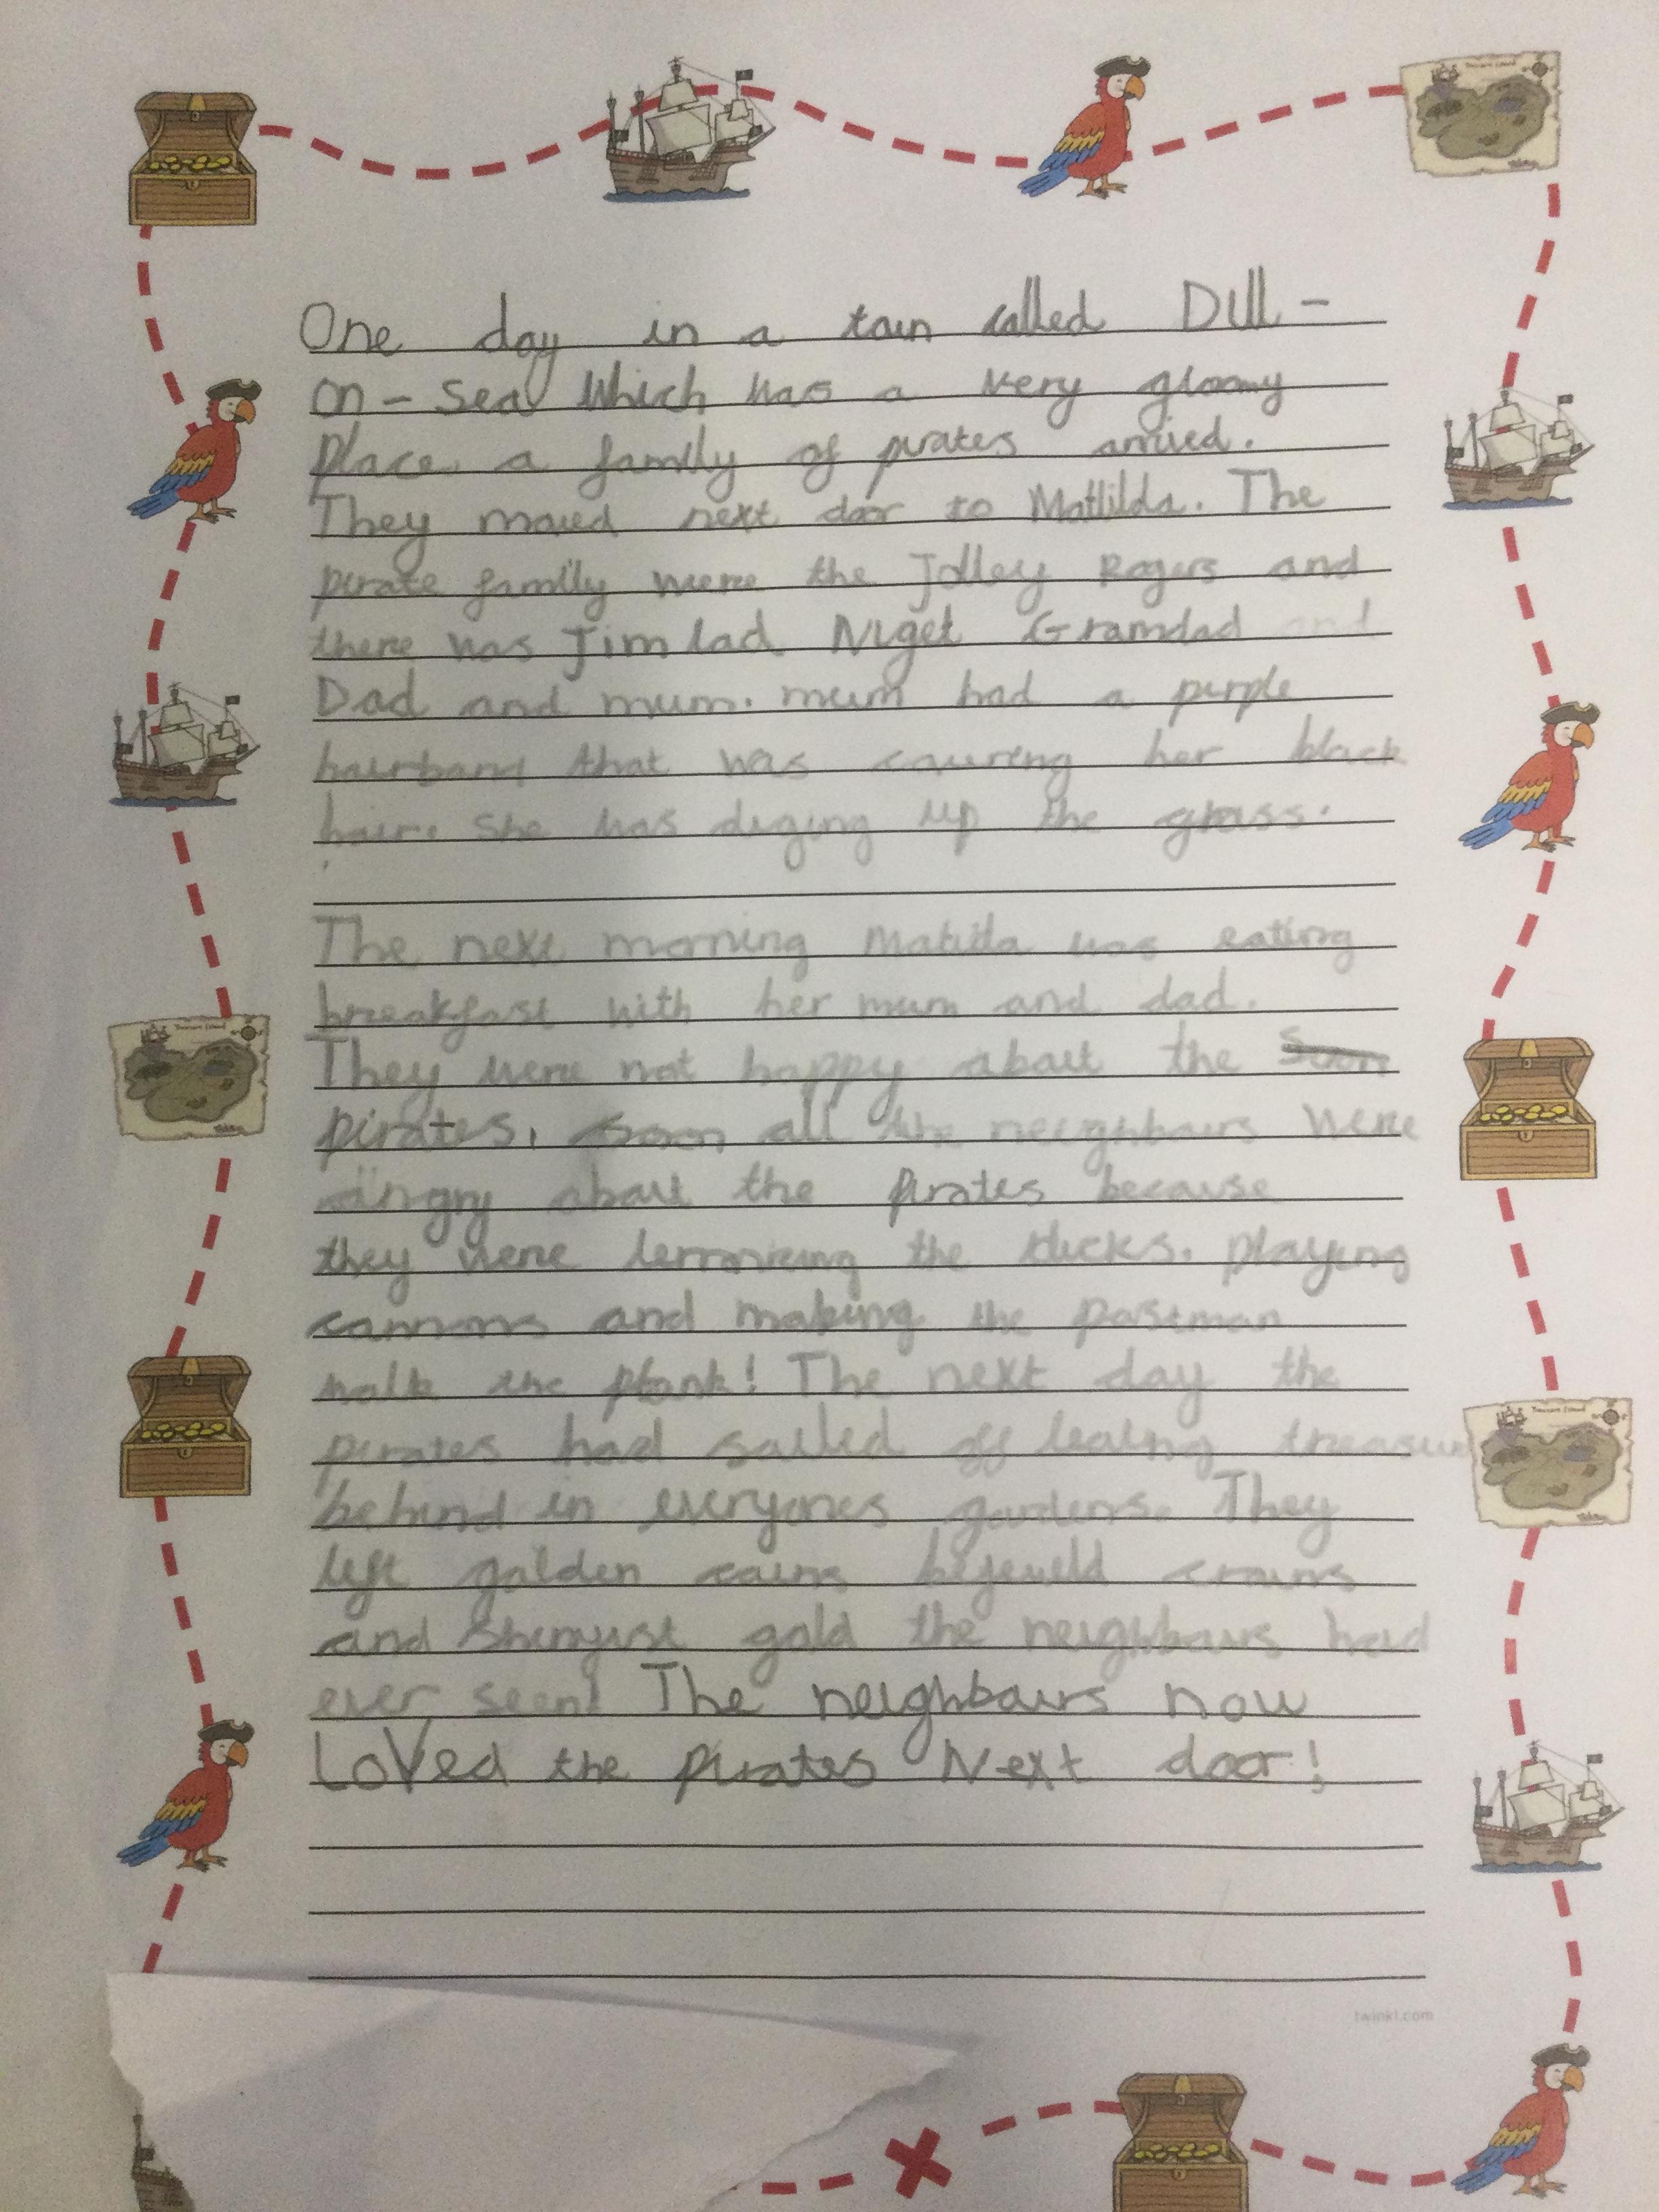 One day in a town called Dull -
on - Sea Which was a very gloomy
place a family of pirates arrived.
They moved next door to Matlilda. The
pirate family were the Jolley Rogers and
there was Jim lad Niget Gramdad and
Dad and mum. mum had a purple
hairband that was couring her black
hair. She was diging up the grass.
The next morning Matilda was eating
breakfast with her mum and dad.
They were not happy about the
pirates. Soon all the neighbours were
angry about the pirates because
they were terrorising the ducks. playing
cannons and making the postman
walk the plank! The next day the
pirates had sailed off leaving treasure
behind in everyones gardens. They
left golden coins bejeweld crowns
and shinyist gold the neighbours had
ever seen! The neighbours now
Loved the pirates Next door!
twinkl.com